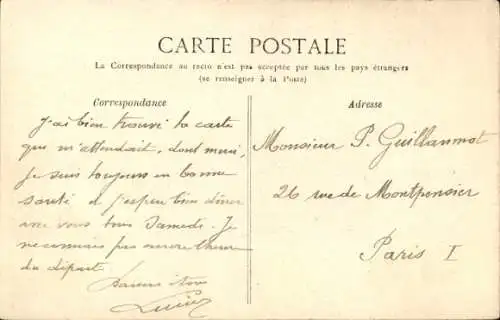 CARTE POSTALE
La Correspondance au recto n'est pas acceptée par tous les pays étrangers
(se renseigner à la Poste)
Correspondance
J'ai bien trouvé la carte
qui m'attendait, dont merci,
je suis toujours en bonne
santé et j'espère bien dîner
avec vous tous Samedi. Je
ne connais pas encore l'heure
du départ.
Adresse
Monsieur P. Guillaumot
26 rue de Montpensier
Paris I